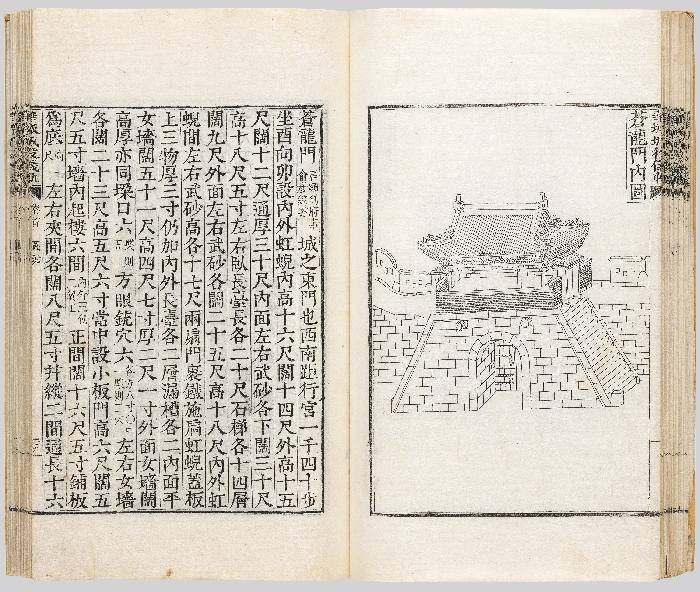 蒼龍門內圖
蒼龍門 城之東門也西南距行宮一千四十步
坐酉向卯設內外虹蜺內高十六尺闊十四尺外高十五
尺闊十二尺通厚三十尺內面左右武砂各下闊三十尺
高十八尺五寸左右臥長臺長各二十尺石梯各十四層
闊九尺外面左右武砂各闊二十五尺高十八尺內外虹
蜺間左右武砂高各十七尺兩扇門裹鐵施扃虹蜺蓋板
上三物厚三寸仍加內外長臺各二層漏槽各二內面平
女墻闊五十一尺高四尺七寸厚二尺一寸外面女墻闊
高厚亦同垜口六 方眼銃穴六 左右女墻
各闊二十三尺高五尺六寸當中設小板門高六尺闊五
尺五寸墻內起樓六間 正間闊十六尺五寸鋪板
爲底 左右夾間各闊八尺五寸幷縱二間通長十六